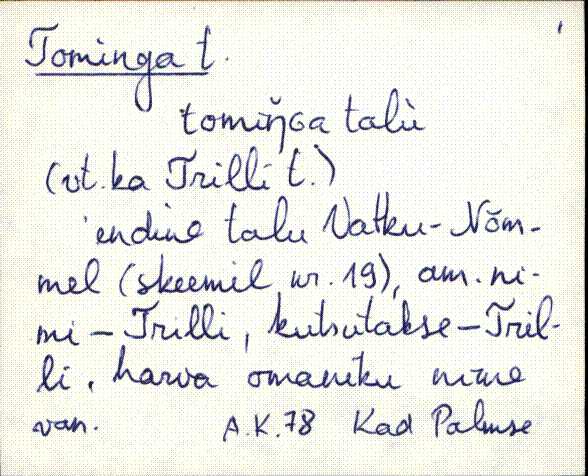 Tominga t.
tomiŋ̆ɢa talù
(vt. ka Trilli t.)
endine talu Vatku-Nõm-
mel (skeemil nr. 19), am. ni-
mi - Trilli, kutsutakse - Tril-
li, harva omaniku nime
van. A.K. 78 Kad Palmse